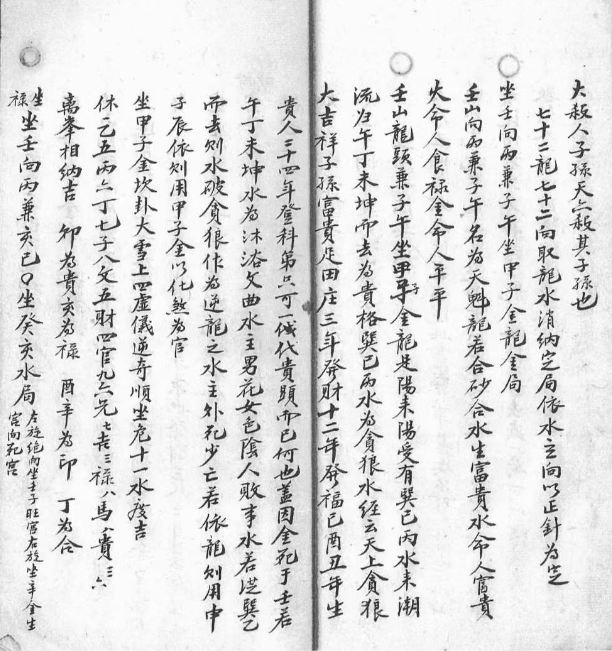 大殺人子孫天六殺其子孫也
七十二龍七十二向取龍水消納定局依水立向以正針為定
坐壬向丙兼子午坐甲子金龍金局
壬山向丙兼子午名為天魁龍若合砂合水生富貴水命人富貴
火命人食禄金命人平平
壬山龍頭兼子午坐甲子金龍是陽来陽受有巽巳丙水来潮
流归午丁未坤而去為貴格巽巳丙水為貪狼水經云天上貪狼
大吉祥子孫富貴足田庄三年發財十二年發福巳酉丑年生
貴人三十四年登科第只可一代貴顕而已何也盖因金死于壬若
午丁未坤水為沐浴文曲水主男花女色陰人敗事水若從巽乙
而去則水破貪狼作為逆龍之水主外死少亡若依龍則用申
子辰依則用甲子金以化煞為官
坐甲子金坎卦大雪上四虛儀逆奇順坐危十一水度吉
休一乙五丙六丁七子八父五財四官九六兄七吉三禄八馬八貴三六
离峯相納吉 卯為貴亥為禄 酉辛為印 丁為合
坐禄 坐壬向丙兼亥巳〇坐癸亥水局 左旋绝向坐壬子旺宫右旋坐辛金生宫向死宫